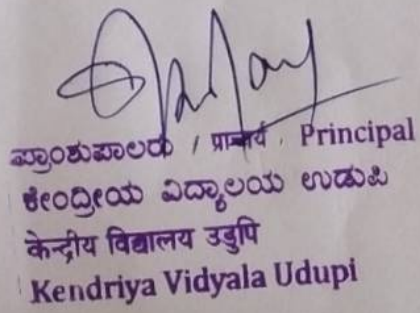 ಪ್ರಾಂಶುಪಾಲರು / प्राचार्य , Principal
ಕೇಂದ್ರೀಯ ವಿದ್ಯಾಲಯ ಉಡುಪಿ
केन्द्रीय विद्यालय उडुपि
Kendriya Vidyala Udupi